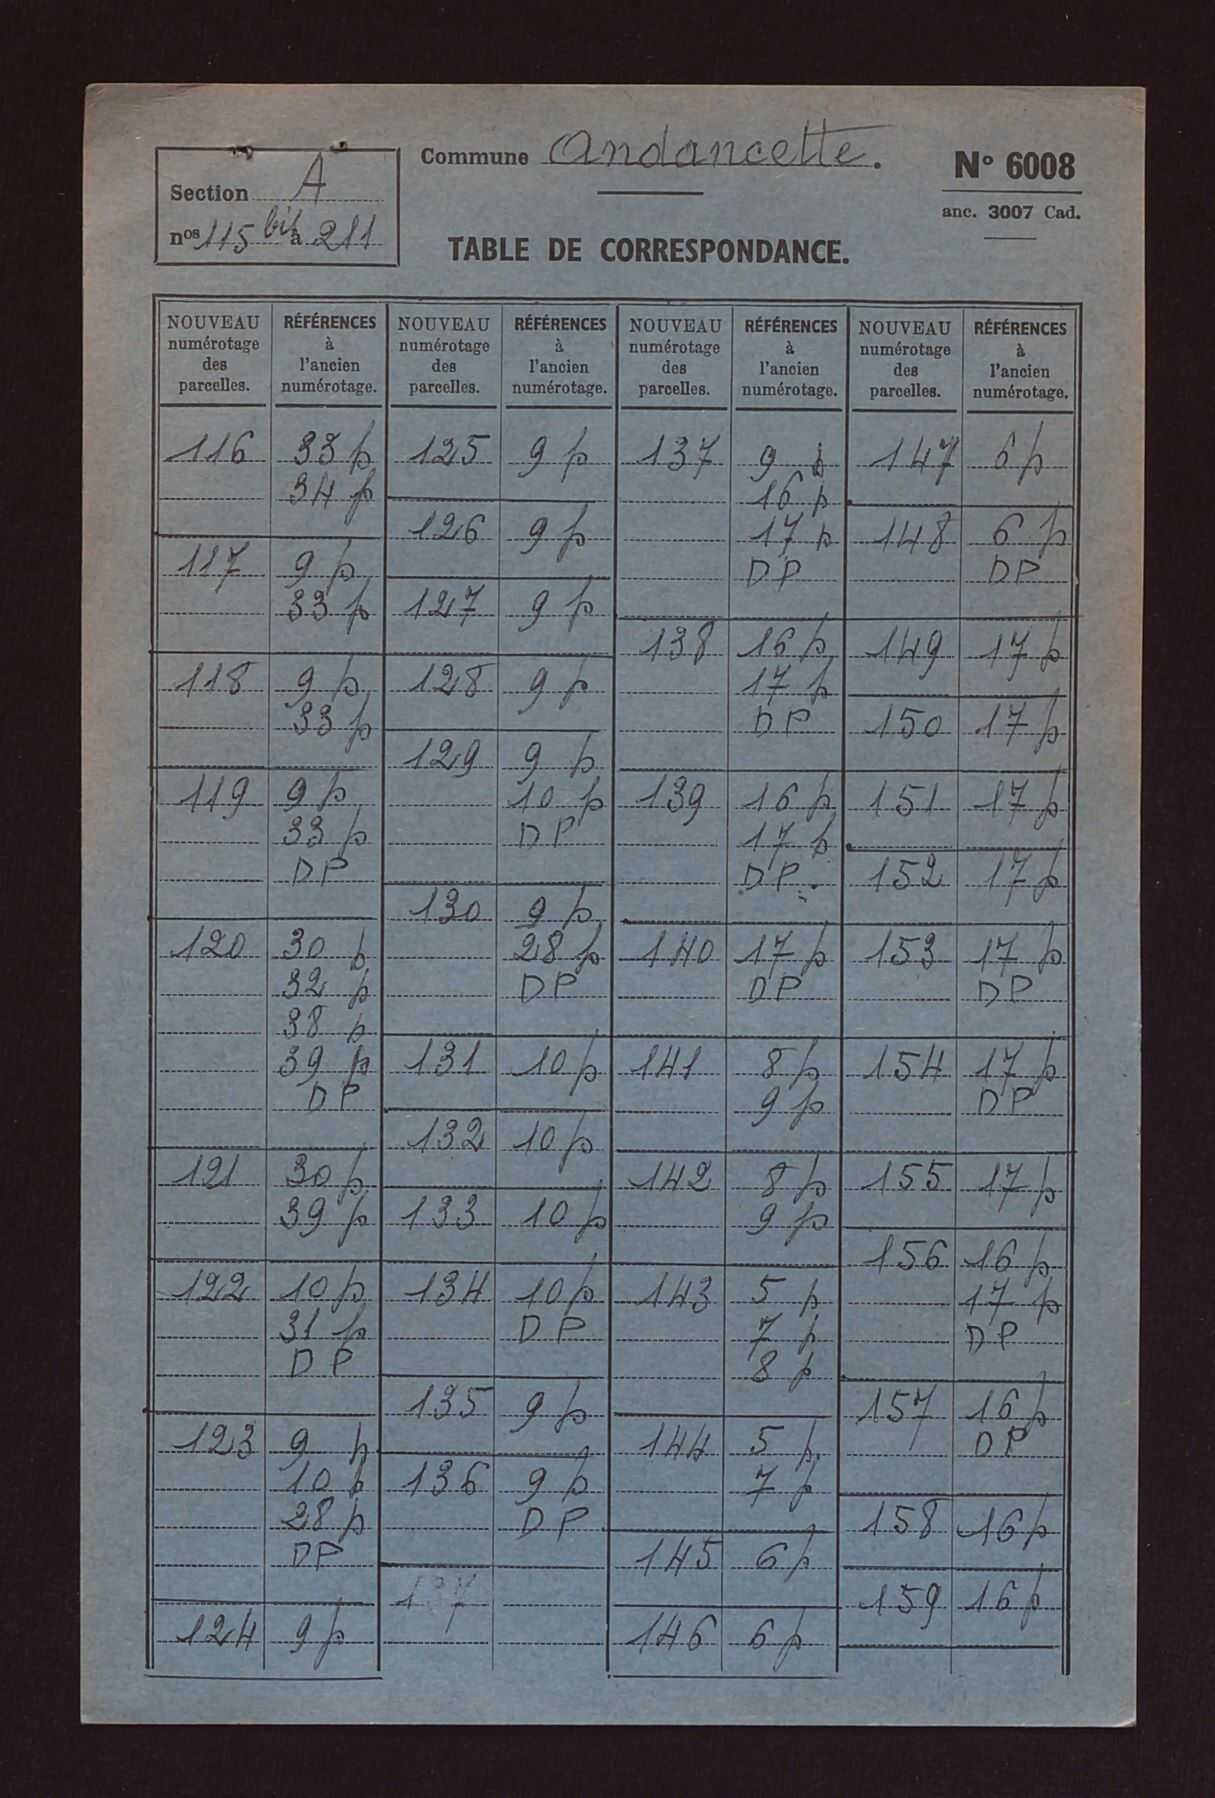 Section A
nos 115 bis à 211
Commune Andancette.
N° 6008
anc. 3007 Cad.
TABLE DE CORRESPONDANCE.
NOUVEAU numérotage des parcelles. RÉFÉRENCES à l'ancien numérotage. NOUVEAU numérotage des parcelles. RÉFÉRENCES à l'ancien numérotage. NOUVEAU numérotage des parcelles. RÉFÉRENCES à l'ancien numérotage. NOUVEAU numérotage des parcelles. RÉFÉRENCES à l'ancien numérotage.
116 33 p
34 p
117 9 p
33 p
118 9 p
33 p
119 9 p
33 p
DP
120 30 p
32 p
38 p
39 p
DP
121 30 p
39 p
122 10 p
31 p
DP
123 9 p
10 p
28 p
DP
124 9 p
125 9 p
126 9 p
127 9 p
128 9 p
129 9 p
10 p
DP
130 9 p
28 p
DP
131 10 p
132 10 p
133 10 p
134 10 p
DP
135 9 p
136 9 p
DP
137
137 9 p
16 p
17 p
DP
138 16 p
17 p
DP
139 16 p
17 p
DP.
140 17 p
DP
141 8 p
9 p
142 8 p
9 p
143 5 p
7 p
8 p
144 5 p
7 p
145 6 p
146 6 p
147 6 p
148 6 p
DP
149 17 p
150 17 p
151 17 p
152 17 p
153 17 p
DP
154 17 p
DP
155 17 p
156 16 p
17 p
DP
157 16 p
DP
158 16 p
159 16 p